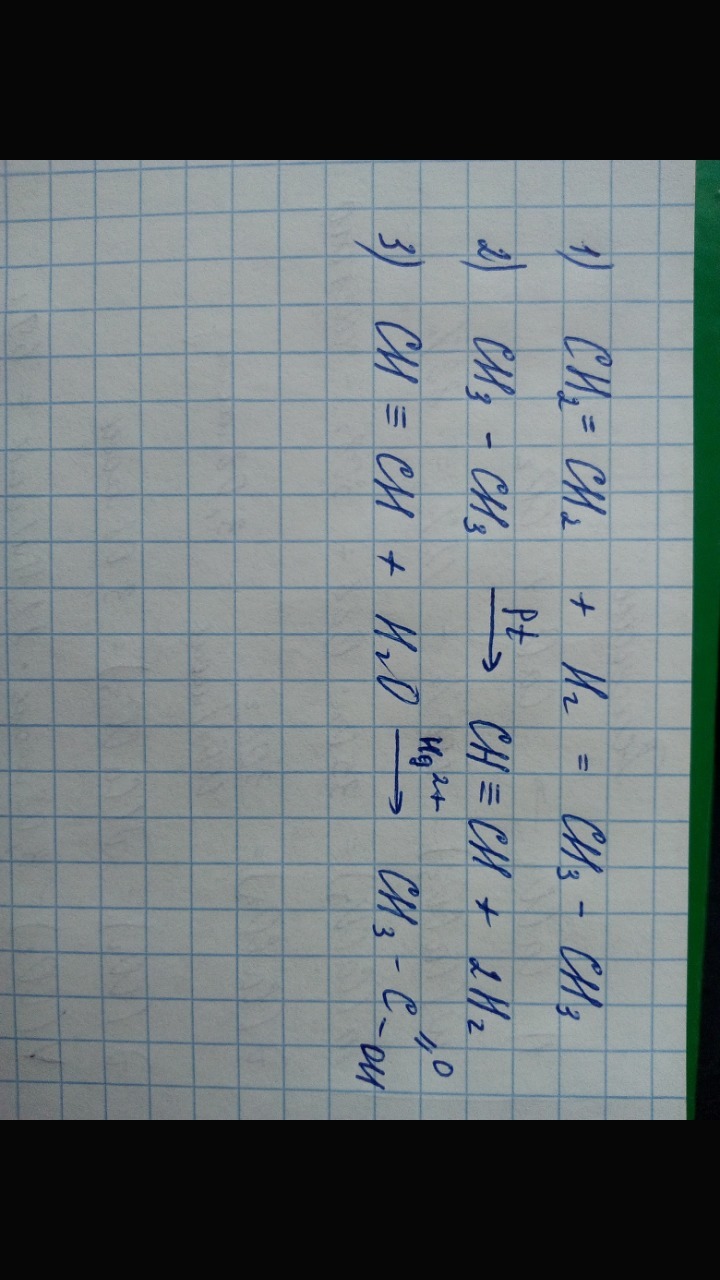 1) CH₂ = CH₂ + H₂ = CH₃ - CH₃
2) CH₃ - CH₃ →^{Pt} CH ≡ CH + 2H₂
3) CH ≡ CH + H₂O →^{Hg²⁺} CH₃ - C(=O) - OH